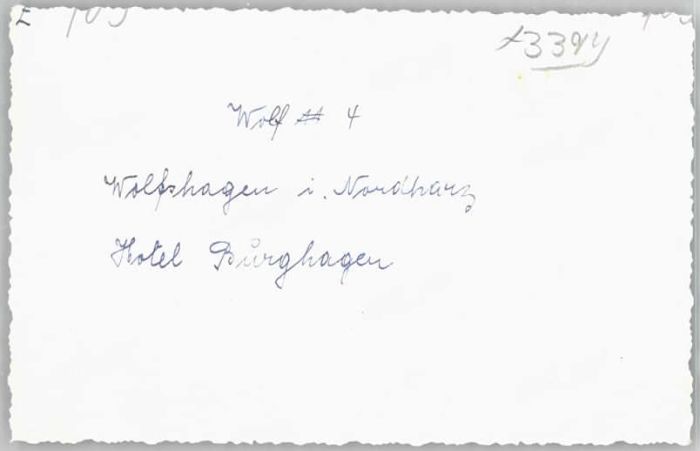 Wolf # 4
Wolfshagen i. Nordharz
Hotel Burghagen